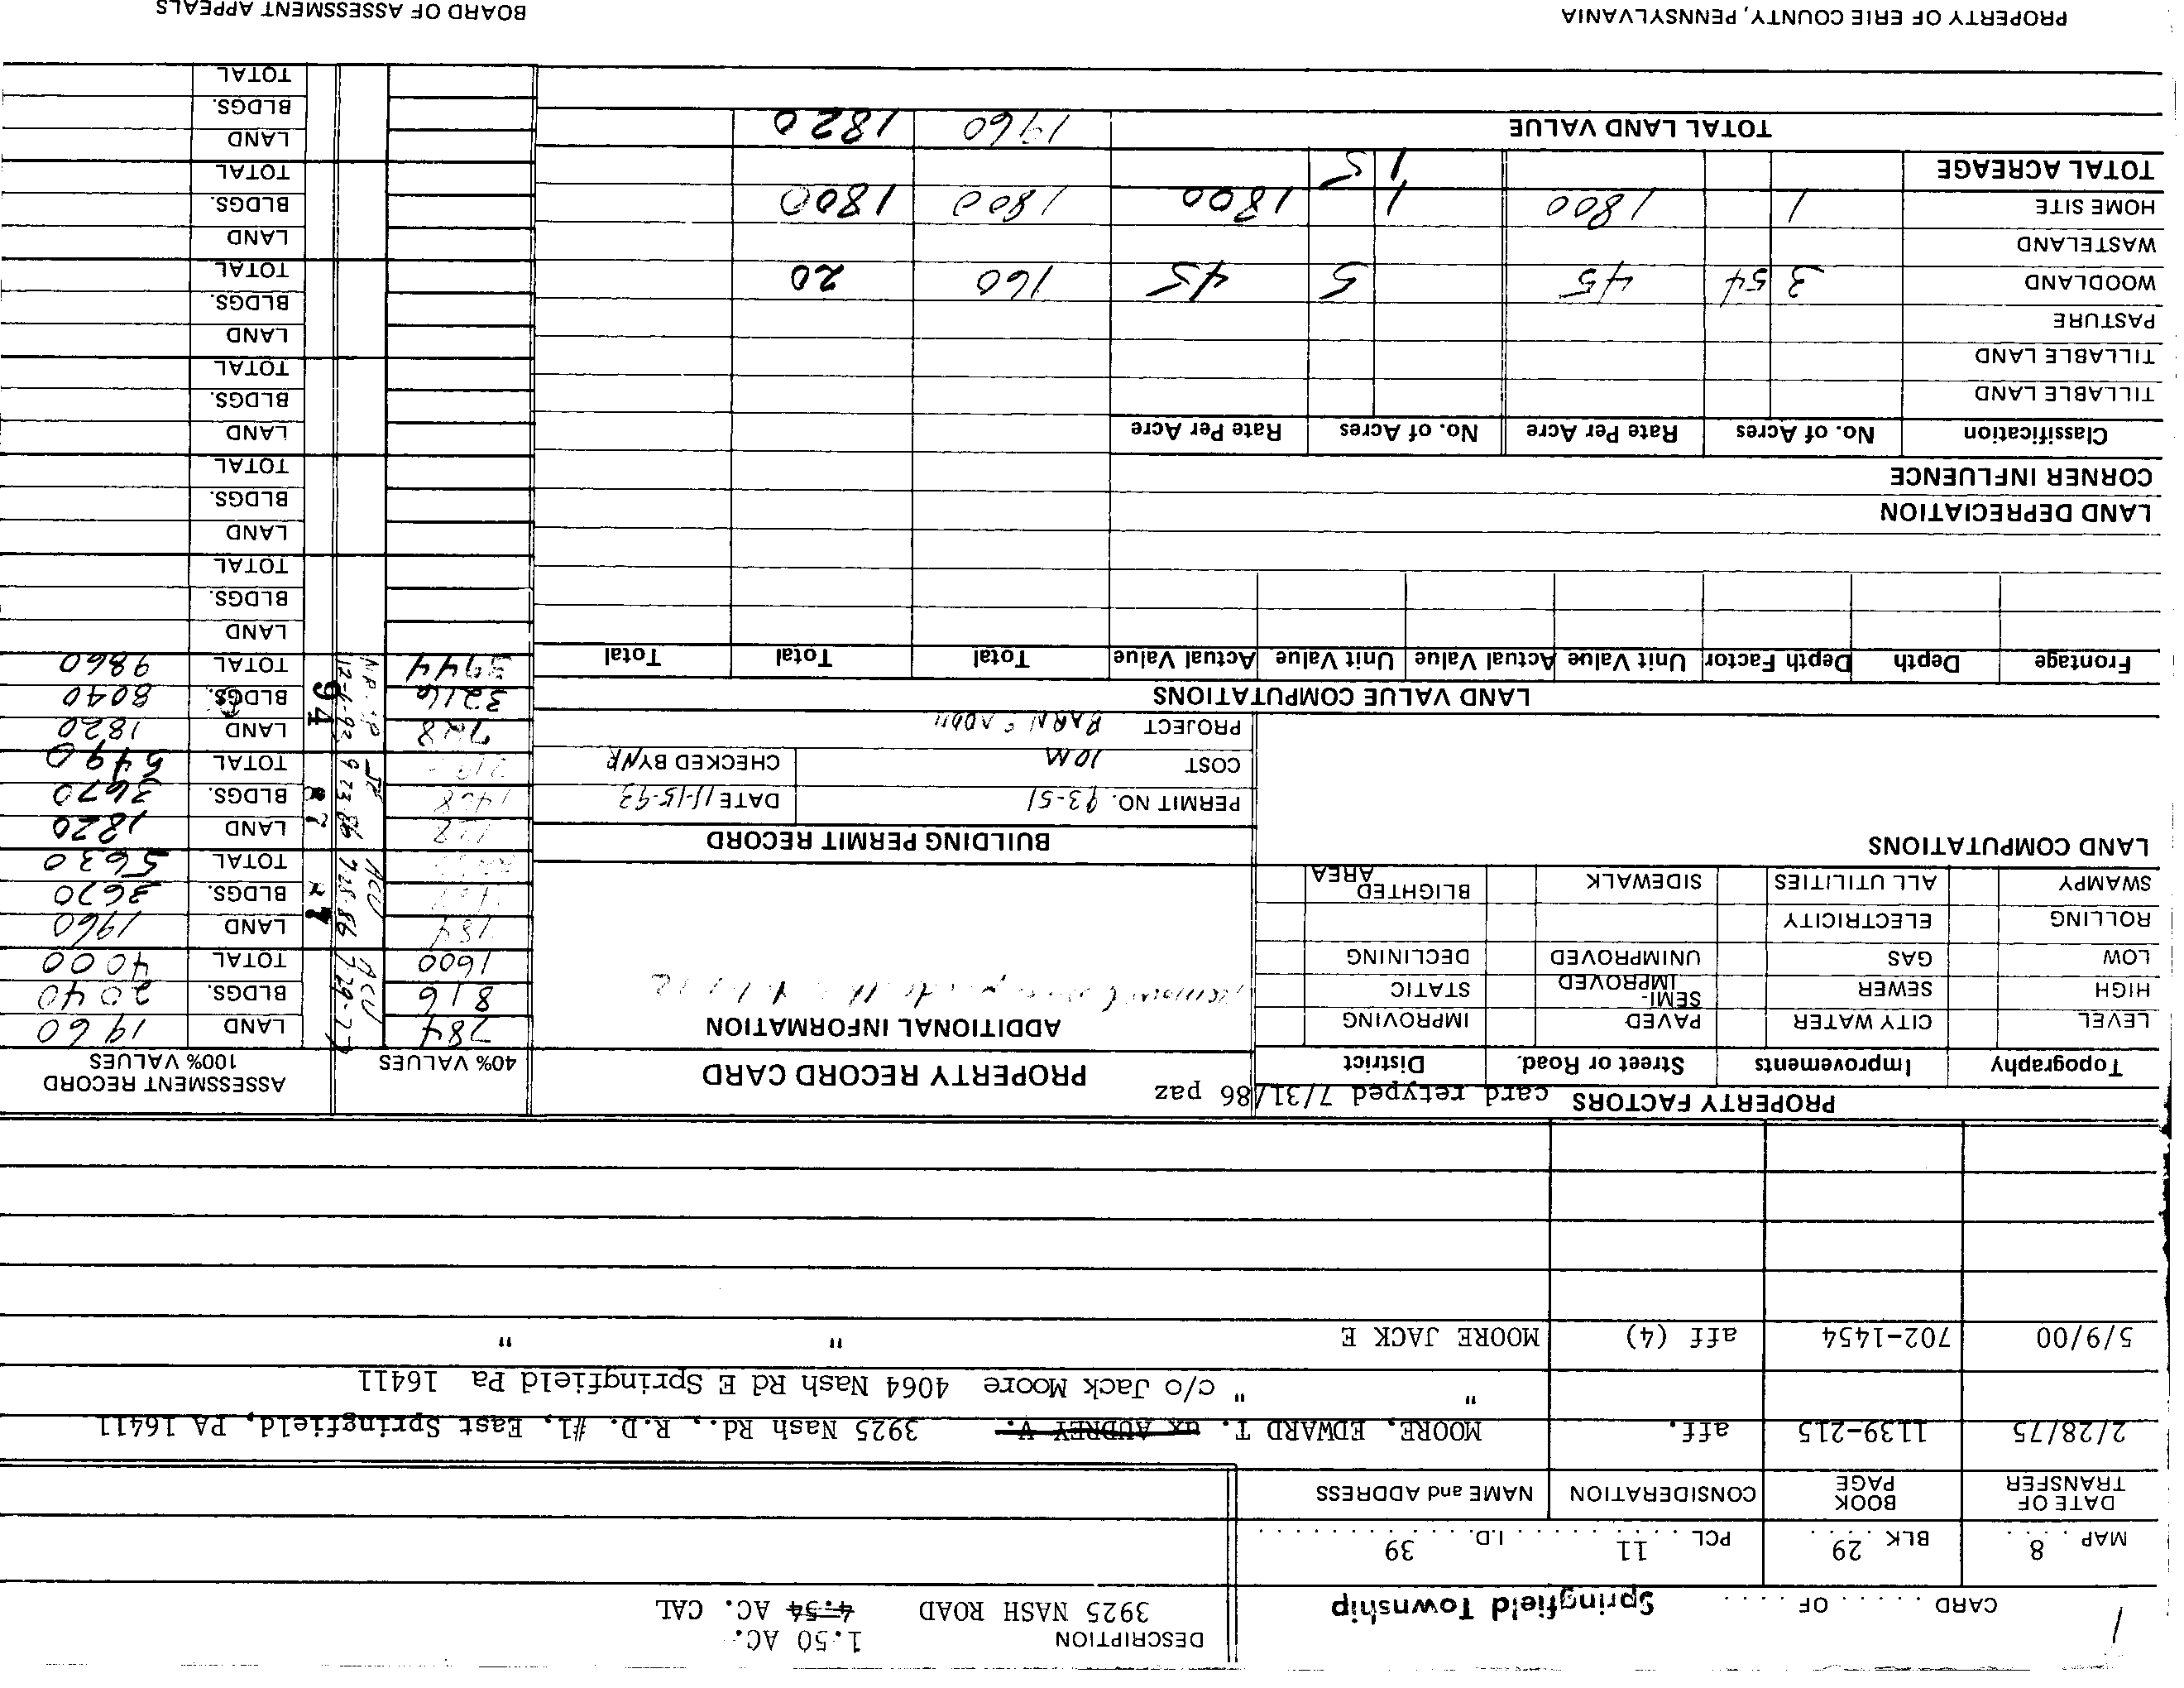 DESCRIPTION 1.50 AC.
CARD . . . . . . OF . . . . . . Springfield Township 3925 NASH ROAD 4.54 AC. CAL
MAP 8 BLK 29 PCL 11 I.D. 39
DATE OF TRANSFER BOOK PAGE CONSIDERATION NAME and ADDRESS
2/28/75 1139-215 aff. MOORE, EDWARD T. ux AUDREY V. 3925 Nash Rd., R.D. #1, East Springfield, PA 16411
" " c/o Jack Moore 4064 Nash Rd E Springfield Pa 16411
5/9/00 702-1454 aff (4) MOORE JACK E " "
PROPERTY FACTORS card retyped 7/31/86 paz
Topography Improvements Street or Road. District
LEVEL CITY WATER PAVED IMPROVING
HIGH SEWER SEMI-IMPROVED STATIC
LOW GAS UNIMPROVED DECLINING
ROLLING ELECTRICITY
SWAMPY ALL UTILITIES SIDEWALK BLIGHTED AREA
LAND COMPUTATIONS
PROPERTY RECORD CARD
ADDITIONAL INFORMATION
BUILDING PERMIT RECORD
PERMIT NO. 93-51 DATE 11-15-93
COST 10M CHECKED BY NR
PROJECT BARN & ADDN
40% VALUES ASSESSMENT RECORD 100% VALUES
784 LAND 1960
816 BLDGS. 2040
1600 ACU 7-29-77 TOTAL 4000
784 LAND 1960
BLDGS. 3670
ACU 7-28-86 TOTAL 5630
728 LAND 1820
1468 87 BLDGS. 3670
9-23-86 TOTAL 5490
728 LAND 1820
3216 94 BLDGS. 8040
3944 TOTAL 9860
LAND
BLDGS.
TOTAL
LAND
BLDGS.
TOTAL
LAND
BLDGS.
TOTAL
LAND
BLDGS.
TOTAL
LAND
BLDGS.
TOTAL
LAND
BLDGS.
TOTAL
LAND VALUE COMPUTATIONS
Frontage Depth Depth Factor Unit Value Actual Value Unit Value Actual Value Total Total Total
LAND DEPRECIATION
CORNER INFLUENCE
Classification No. of Acres Rate Per Acre No. of Acres Rate Per Acre
TILLABLE LAND
TILLABLE LAND
PASTURE
WOODLAND 3 54 45 5 45 160 20
WASTELAND
HOME SITE 1 1800 1 1800 1800 1800
TOTAL ACREAGE 1 5
TOTAL LAND VALUE 1960 1820
PROPERTY OF ERIE COUNTY, PENNSYLVANIA BOARD OF ASSESSMENT APPEALS